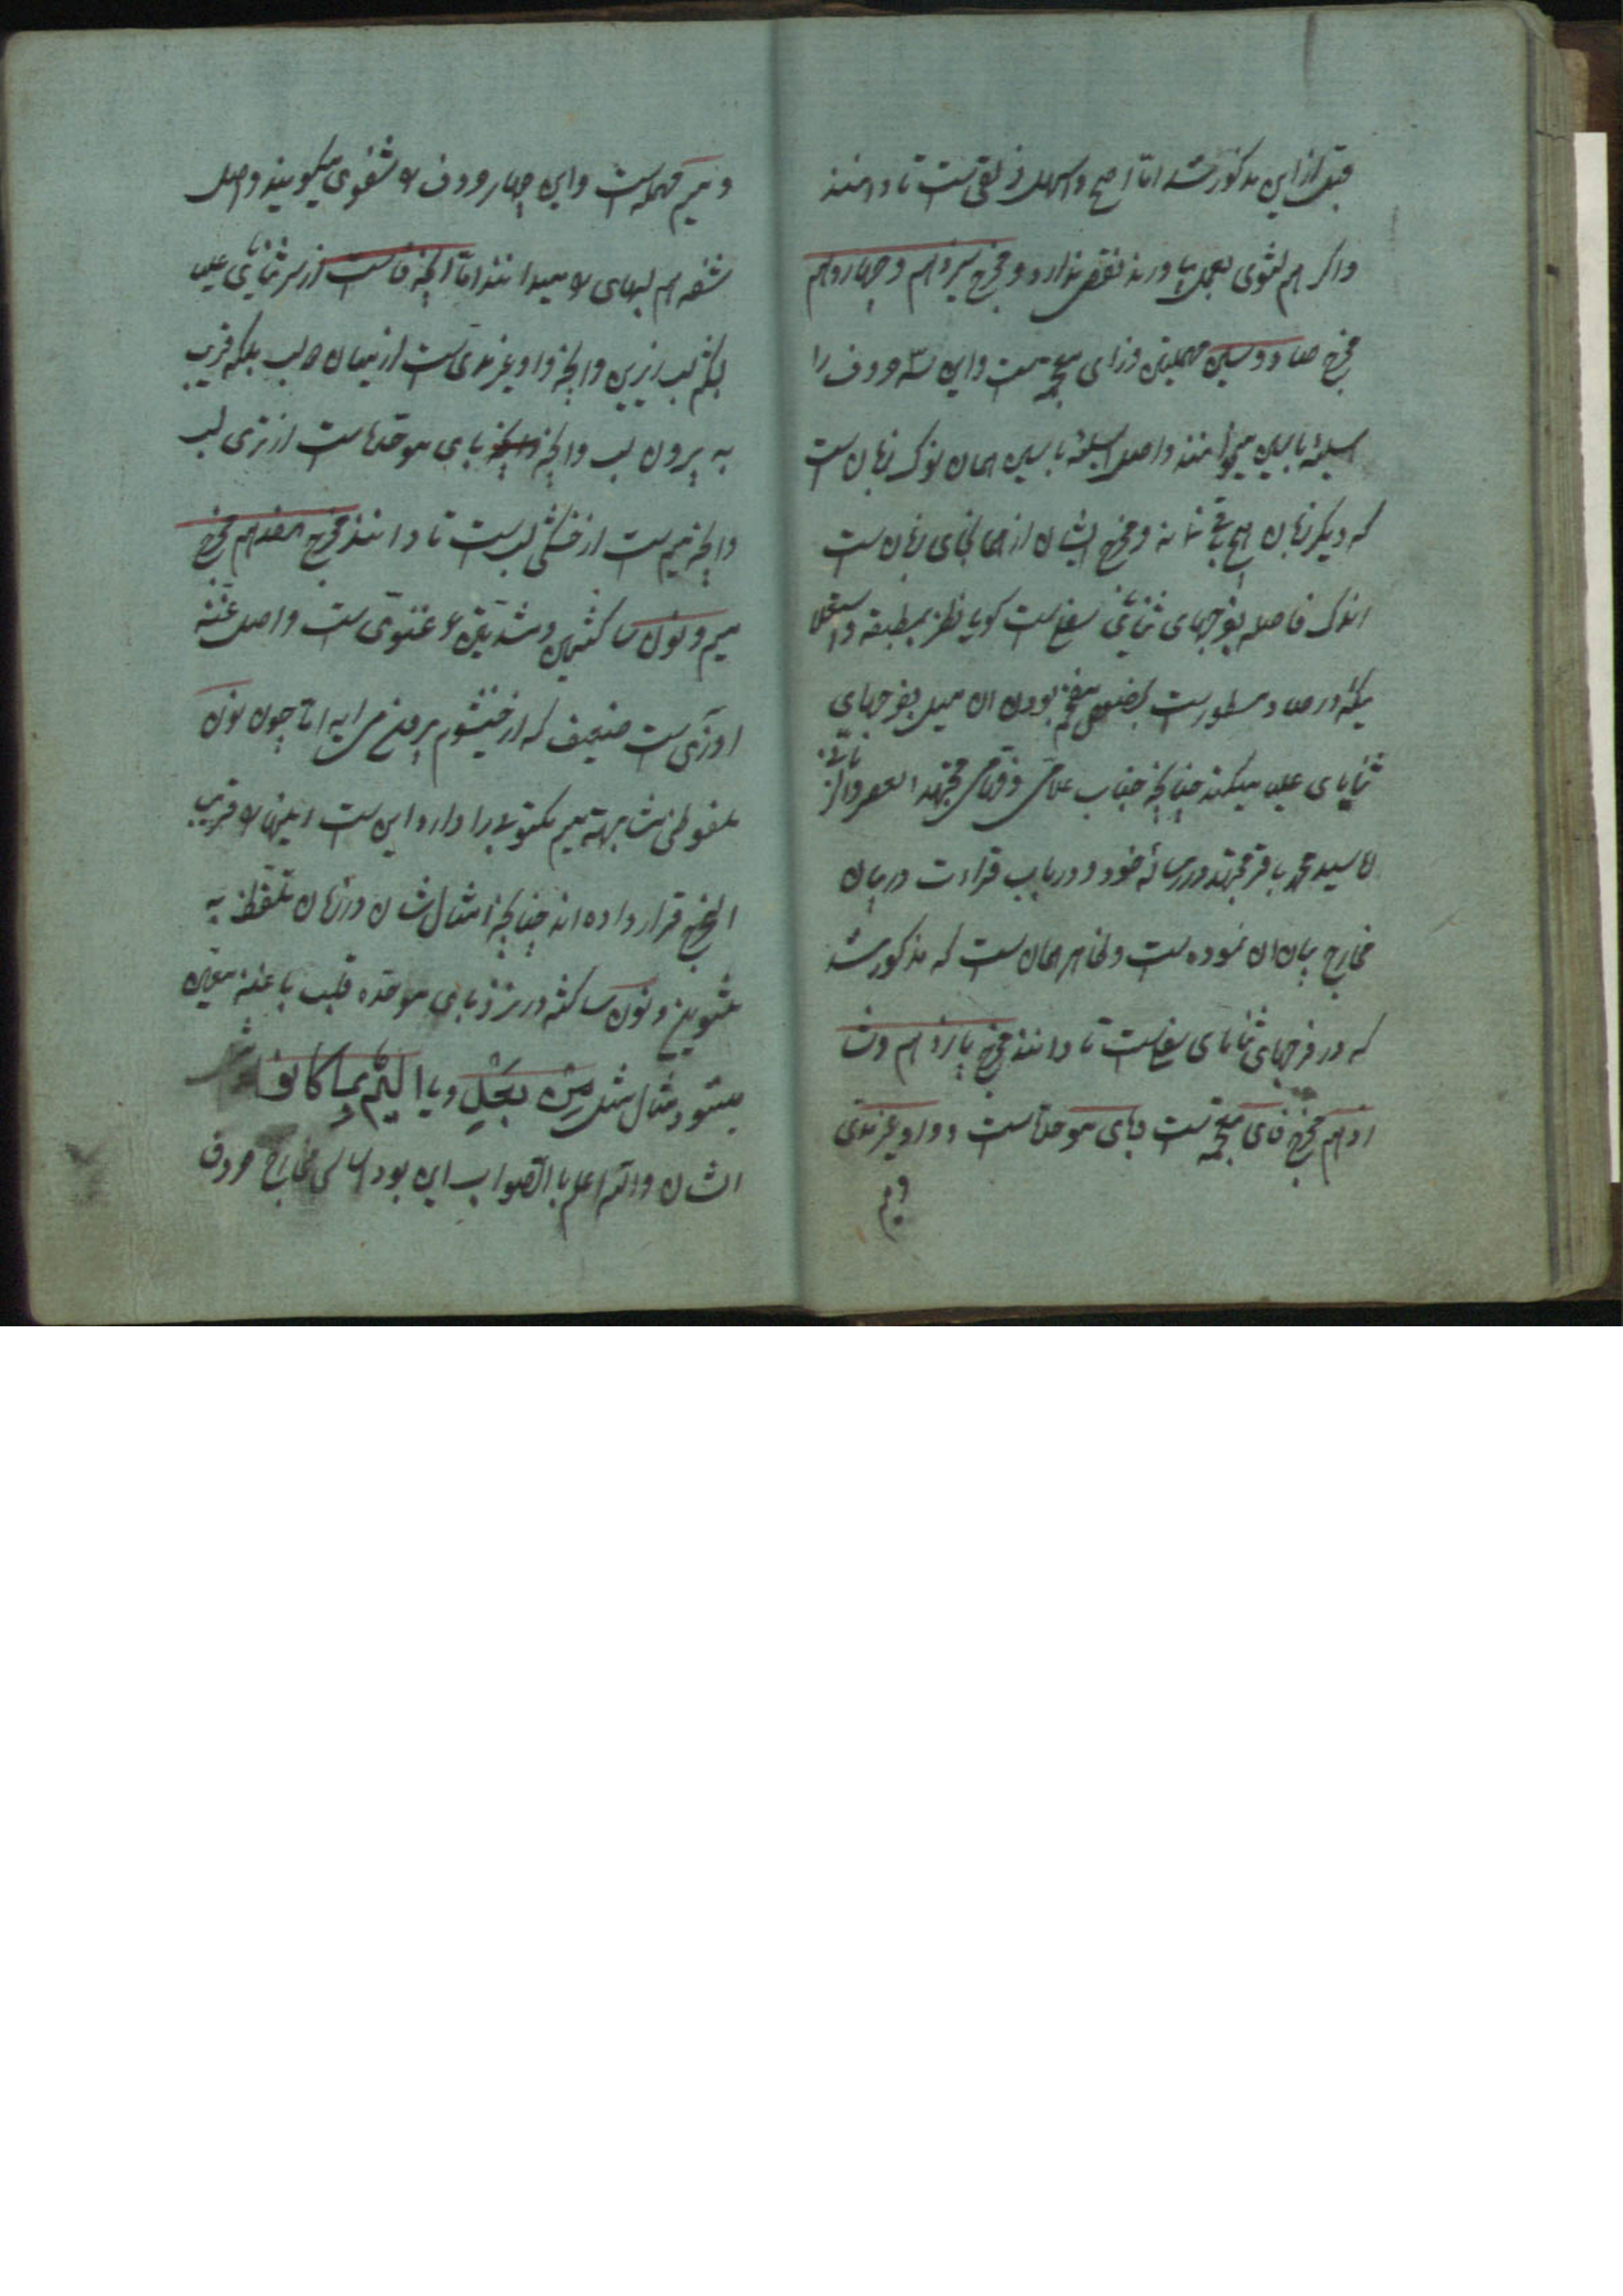 قبل از این مذکور شد اما اصح و اسهل ذلقی ست تا دانند
و اگر هم لثوی بعمل بیاورند نقص ندارد و مخرج سیزدهم و چهاردهم
مخرج صاد و سین مهملتین و زای معجمه ست و این سه حروف را
اسلیه با سین میخوانند و اصل اسلیه با سین همان نوک زبان ست
که دیگر زبان هیچ باقی نماند و مخرج ایشان از همانجای زبان ست
اندک فاصله بفرجهای ثنایای سفلی ست گویا نظر بمطبقه و استعلا
یکه در صاد مسطور ست مفخم بودن ان میل بفرجهای
ثنایای علیا میکند چنانچه جناب علامی و فهامی مجتهد العصر والزمانی
سید محمد باقر مجتهد در رساله خود و در باب قراءت در بیان
مخارج بیان ان نموده ست و ظاهر همان ست که مذکور شد
که در فرجهای ثنایای سفلی ست تا دانند مخرج پانزدهم و ش
انزدهم مخرج فای معجمه ست و بای موحده ست و واو غیر مدی
و میم
و میم مهمله است و این چهار حروف را شفوی میگویند و اصل
شفه هم لبهای را میدانند اما انچه فاست از سر ثنایای علیا
بشکم لب زیرین و انچه واو غیر مدی ست از میان لب بلکه قریب
به بیرون لب و انچه بای موحده است از تری لب
و انچه میم ست از خشکی لب ست تا دانند مخرج هفدهم مخرج
میم و نون ساکنین و مشدتین غنوی ست و اصل غنه
اوازی ست ضعیف که از خیشوم بیرون می اید اما چون نون
ملفوظی مشابهة میم مکتوبی را دارد این ست اینها را قریب
المخرج قرار داده اند چنانچه امثال شان در زبان تلفظ به
تنوین و نون ساکنه در نزد بای موحده قلب با غنه معین
میشود مثال مثل من بخل و یا الیم بما کانوا
الشان والله اعلم بالصواب این بود اسامی مخارج حروف